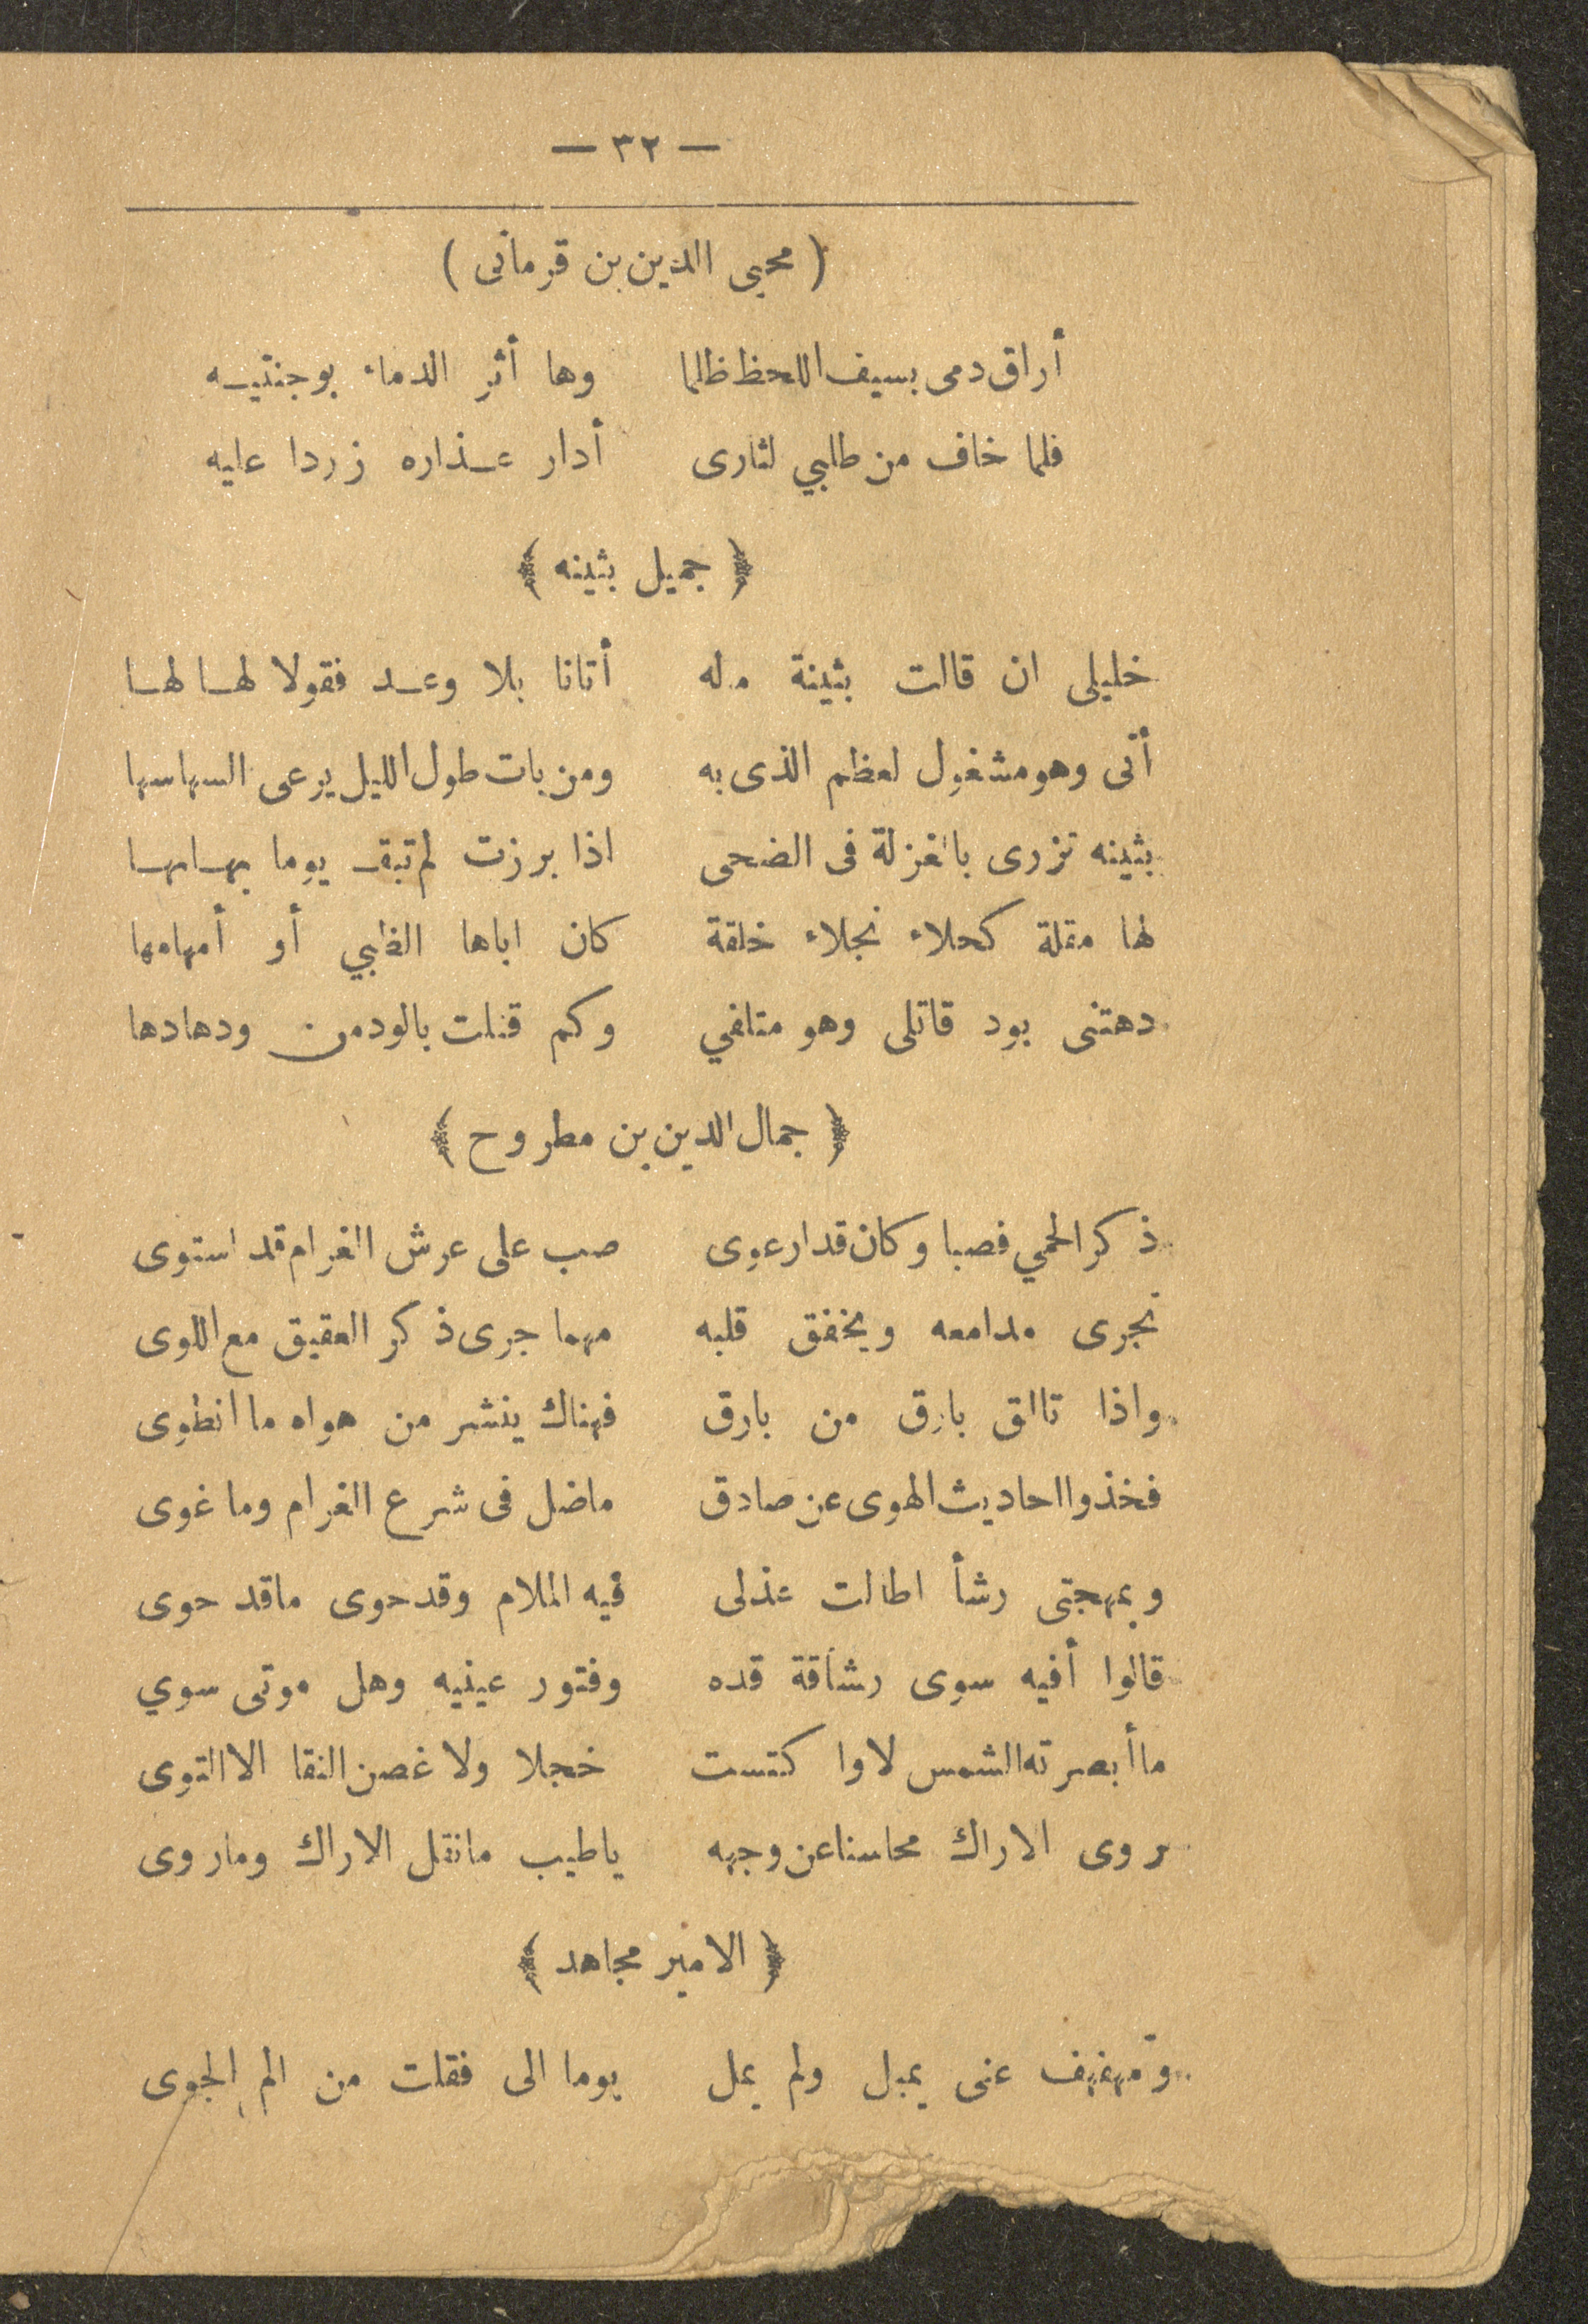 — ٣٢ —
( محيى الدين بن قرمانى )
أراق دمى بسيف اللحظ ظالما وها أثر الدماء بوجنتيه
فلما خاف من طلبي لثارى أدار عذاره زردا عليه
﴿ جميل بثينه ﴾
خليلى ان قالت بثينة مله أتانا بلا وعد فقولا لها لها
أتى وهو مشغول لعظم الذى به ومن بات طول الليل يرعى السها سها
بثينه تزرى بالغزلة فى الضحى اذا برزت لم تبق يوما بها بها
لها مقلة كحلاء نجلاء خلقة كان اباها الظبي أو أمها مها
دهتنى بود قاتلى وهو متلفي وكم قتلت بالود من ودها دها
﴿ جمال الدين بن مطروح ﴾
ذكر الحمي فصبا وكان قد ارعوى صب على عرش الغرام قد استوى
تجرى مدامعه ويخفق قلبه مهما جرى ذكر العقيق مع اللوى
واذا تالق بارق من بارق فهناك ينشر من هواه ما انطوى
فخذوا احاديث الهوى عن صادق ماضل فى شرع الغرام وما غوى
وبمهجتى رشأ اطالت عذلى فيه الملام وقد حوى ماقد حوى
قالوا أفيه سوى رشاقة قده وفتور عينيه وهل موتى سوي
ما أبصرته الشمس لاوا كتست خجلا ولا غصن النقا الا التوى
روى الاراك محاسنا عن وجهه ياطيب مانقل الاراك وماروى
﴿ الامير مجاهد ﴾
ومهفهف عنى يميل ولم يمل يوما الى فقلت من الم الجوى